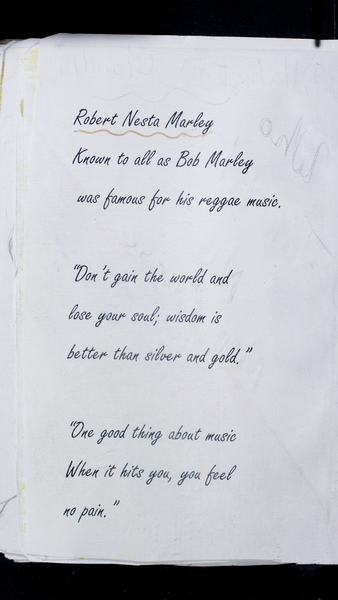 Robert Nesta Marley
Known to all as Bob Marley
was famous for his reggae music.
"Don't gain the world and
lose your soul; wisdom is
better than silver and gold."
"One good thing about music
When it hits you, you feel
no pain."